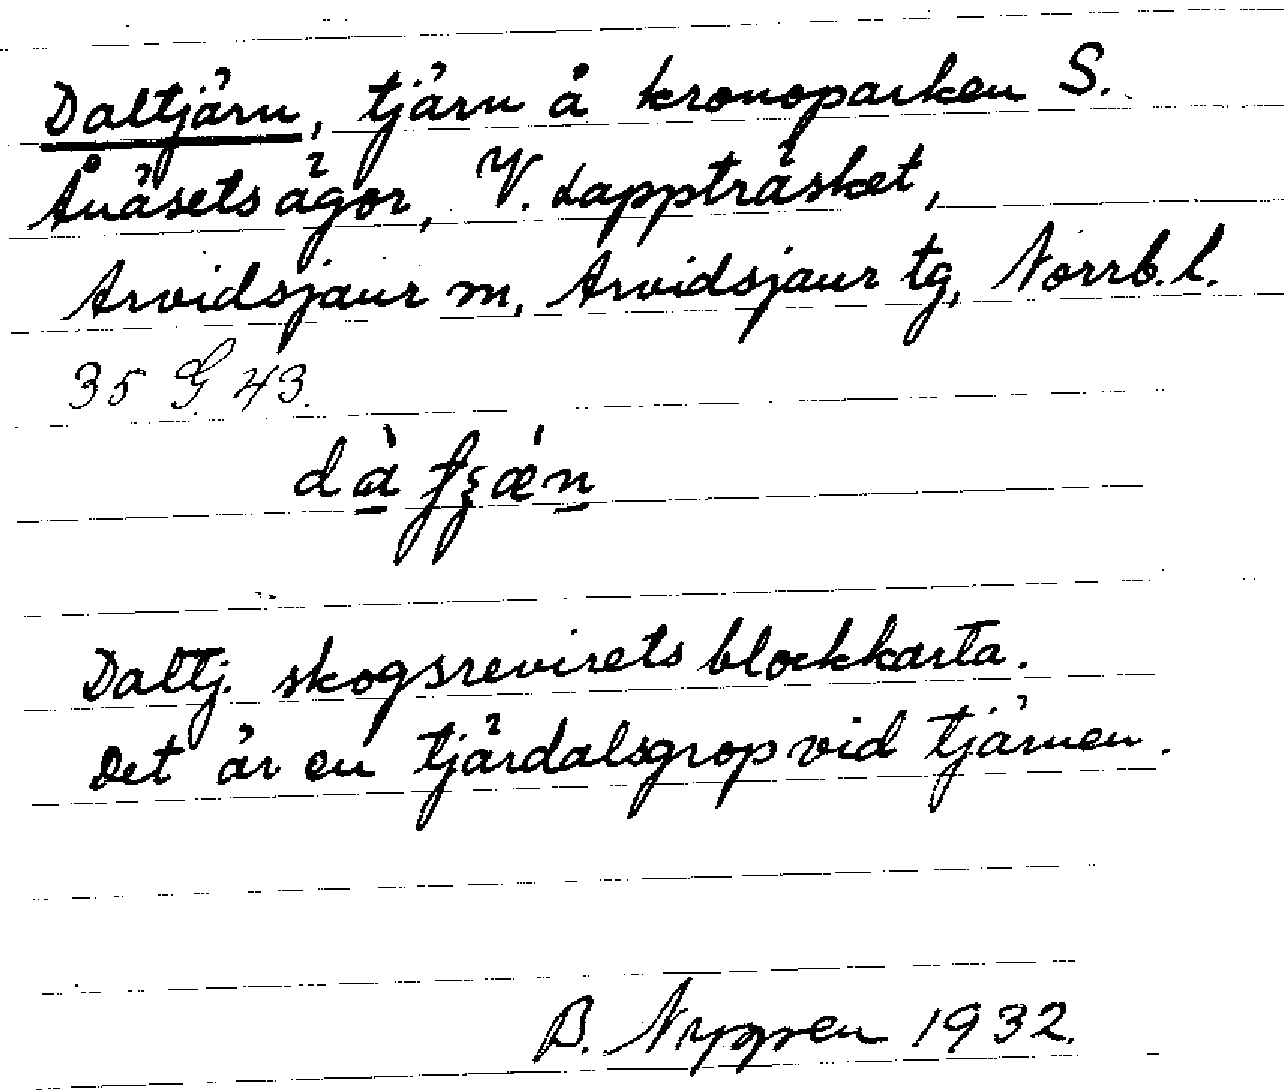 Daltjärn, tjärn å kronoparken S.
Ånäsets ägor, V. Lappträsket,
Arvidsjaur sn, Arvidsjaur tg, Norrb. l.
35 G 43.
Daltj. skogsrevirets blockkarta.
Det är en tjärdalsgrop vid tjärnen.
B. Nygren 1932.